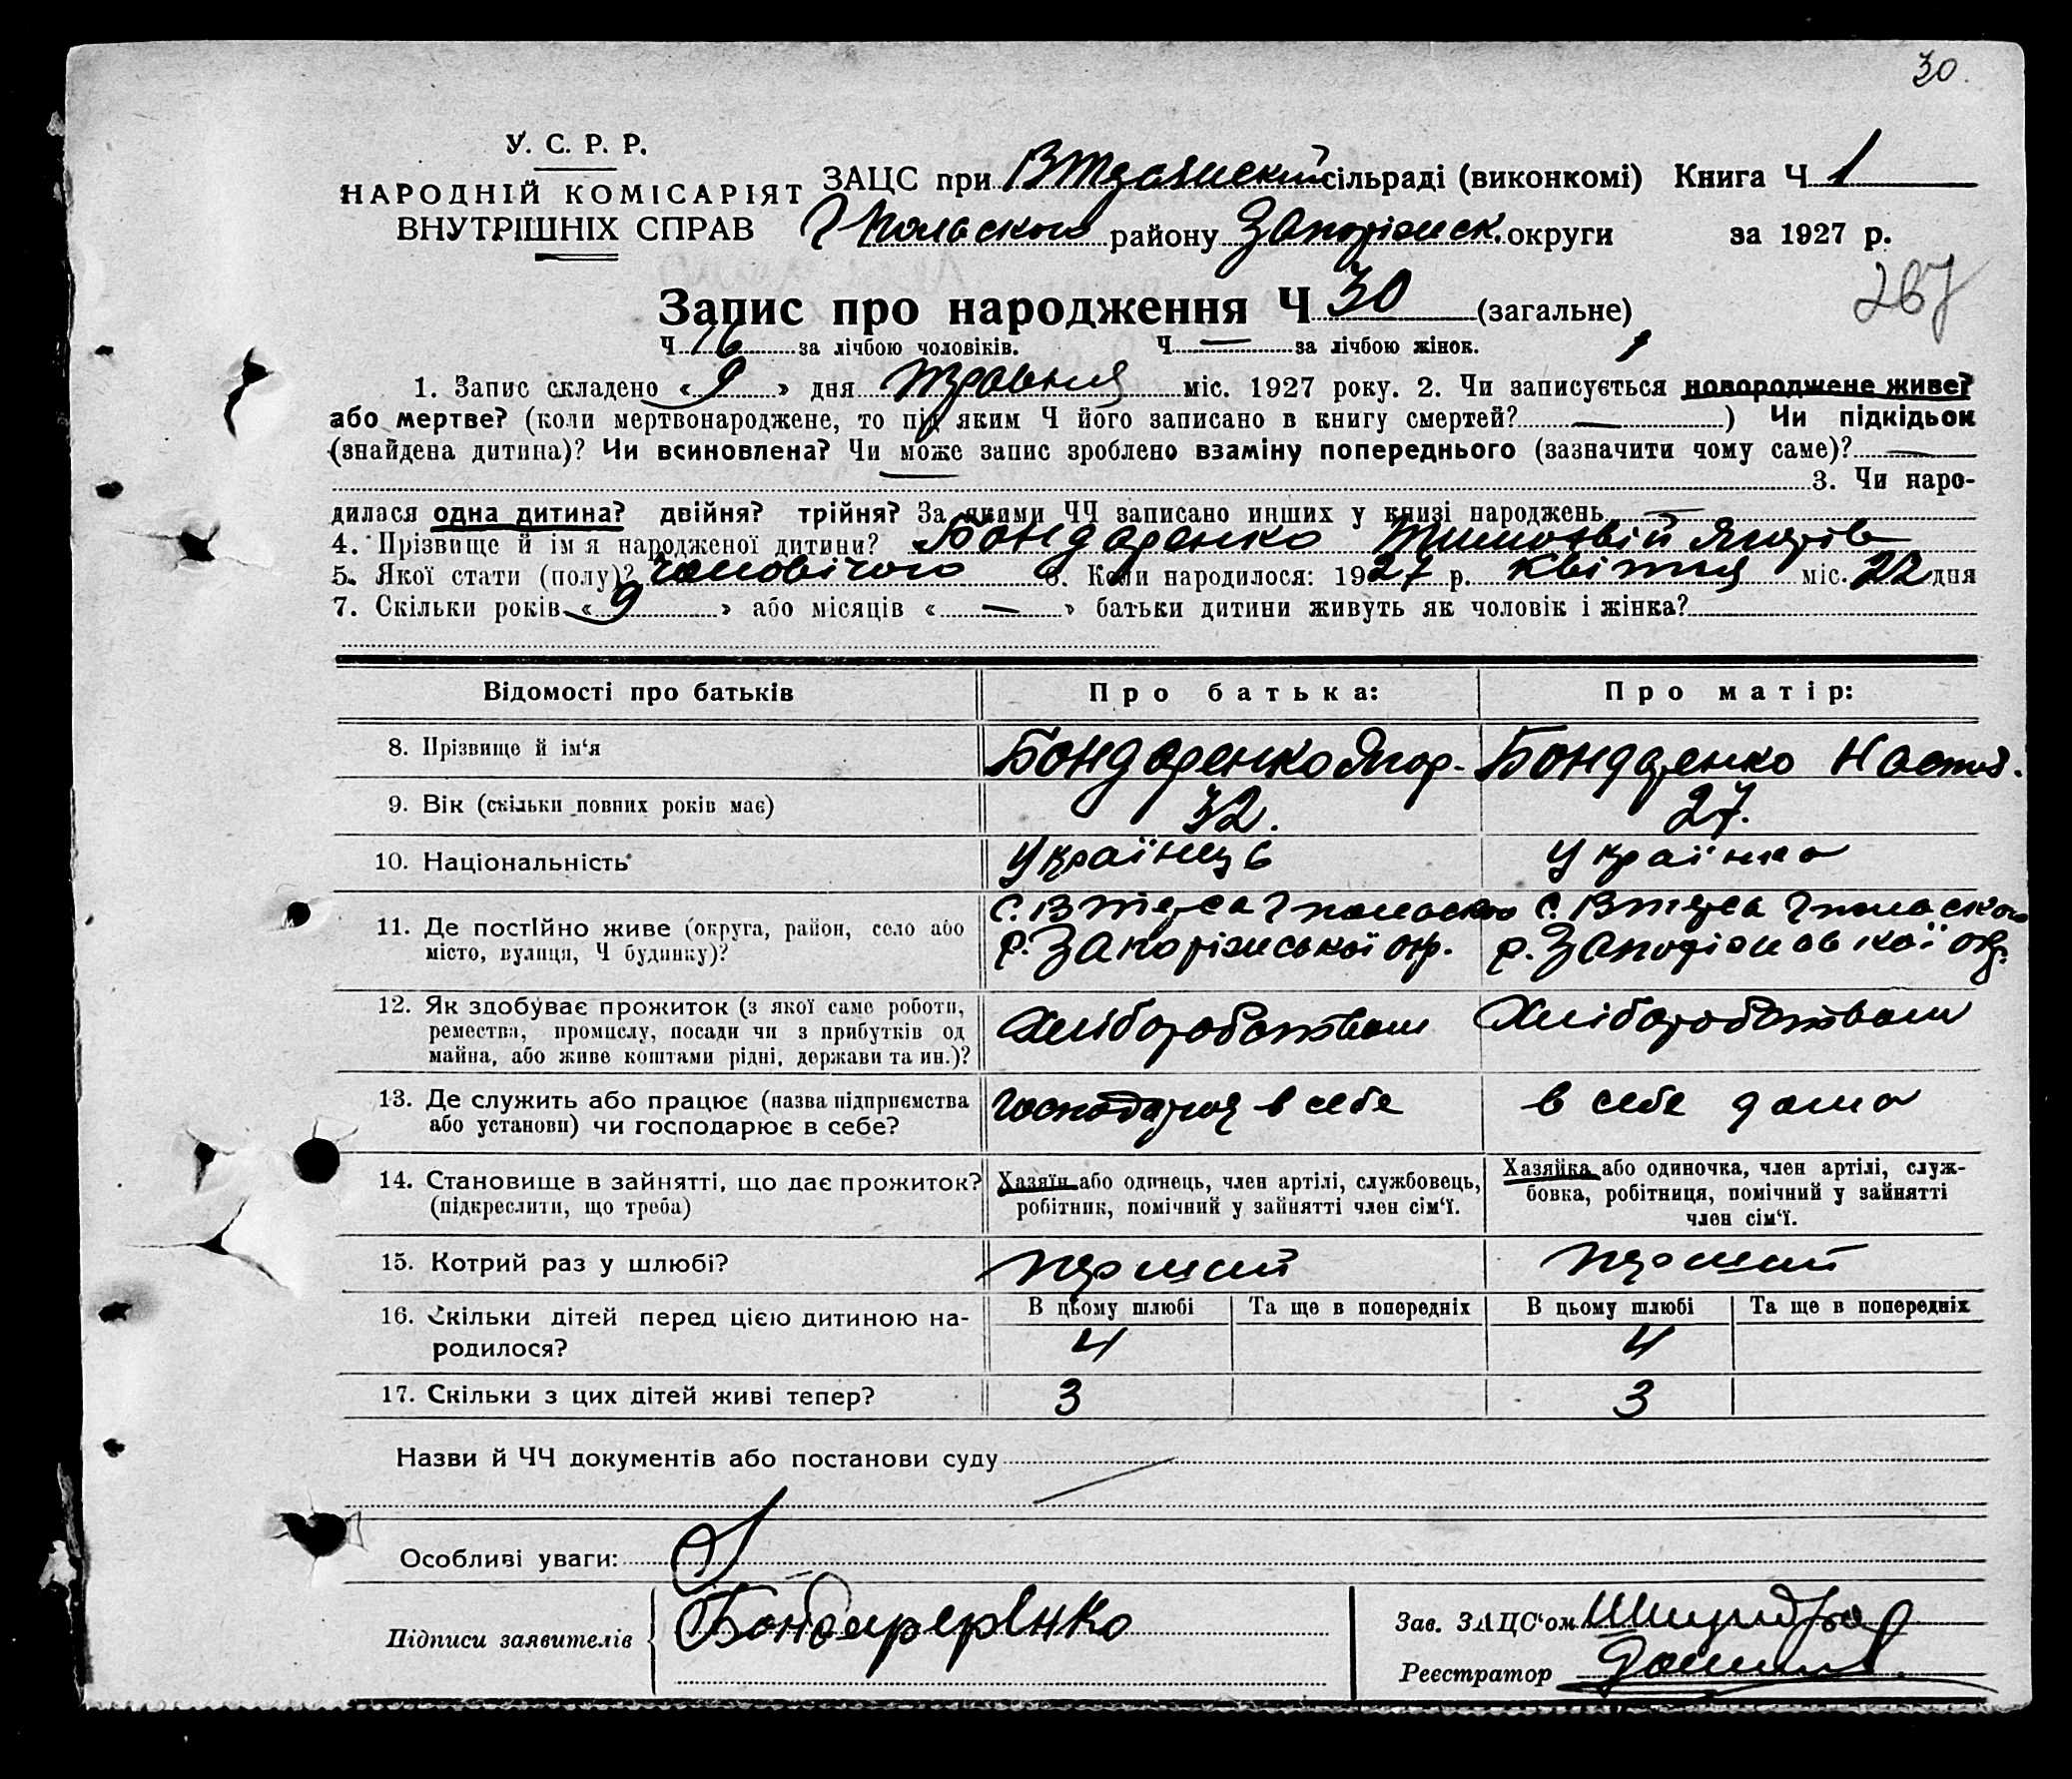 30.
У. С. Р. Р.
НАРОДНІЙ КОМІСАРІЯТ
ВНУТРІШНІХ СПРАВ
ЗАЦС при сільраді (виконкомі) Книга Ч 1
району Запоріжск. округи за 1927 р.
267
Запис про народження Ч 30 (загальне)
Ч 16 за лічбою чоловіків. Ч — за лічбою жінок.
1. Запис складено « 9 » дня травня міс. 1927 року. 2. Чи записується новороджене живе?
або мертве? (коли мертвонароджене, то під яким Ч його записано в книгу смертей? — ) Чи підкідьок
(знайдена дитина)? Чи всиновлена? Чи може запис зроблено взаміну попереднього (зазначити чому саме)? —
3. Чи наро-
дилася одна дитина? двійня? трійня? За якими ЧЧ записано инших у книзі народжень —
4. Прізвище й ім'я народженої дитини? Бондаренко Тимофвій Ягорів
5. Якої стати (полу)? чоловічого 6. Коли народилося: 1927 р. квітня міс. 22 дня
7. Скільки років « 9 » або місяців « — » батьки дитини живуть як чоловік і жінка?
Відомості про батьків Про батька: Про матір:
8. Прізвище й ім'я Бондаренко Ягор. Бондаренко Настя.
9. Вік (скільки повних років має) 32. 27.
10. Національність Українець Українка
11. Де постійно живе (округа, район, село або
місто, вулиця, Ч будинку)?
р. Запоріжської окр. р. Запоріжської окр.
12. Як здобуває прожиток (з якої саме роботи,
ремества, промислу, посади чи з прибутків од
майна, або живе коштами рідні, держави та ин.)?
Хліборобством Хліборобством
13. Де служить або працює (назва підприємства
або установи) чи господарює в себе?
в себе в себе дома
14. Становище в зайнятті, що дає прожиток?
(підкреслити, що треба)
Хазяїн або одинець, член артілі, службовець,
робітник, помічний у зайнятті член сім'ї.
Хазяйка або одиночка, член артілі, служ-
бовка, робітниця, помічний у зайнятті
член сім'ї.
15. Котрий раз у шлюбі? перший перший
16. Скільки дітей перед цією дитиною на-
родилося?
В цьому шлюбі Та ще в попередніх В цьому шлюбі Та ще в попередніх
4 4
17. Скільки з цих дітей живі тепер? 3 3
Назви й ЧЧ документів або постанови суду
Особливі уваги:
Підписи заявителів
Зав. ЗАЦС'ом
Реєстратор